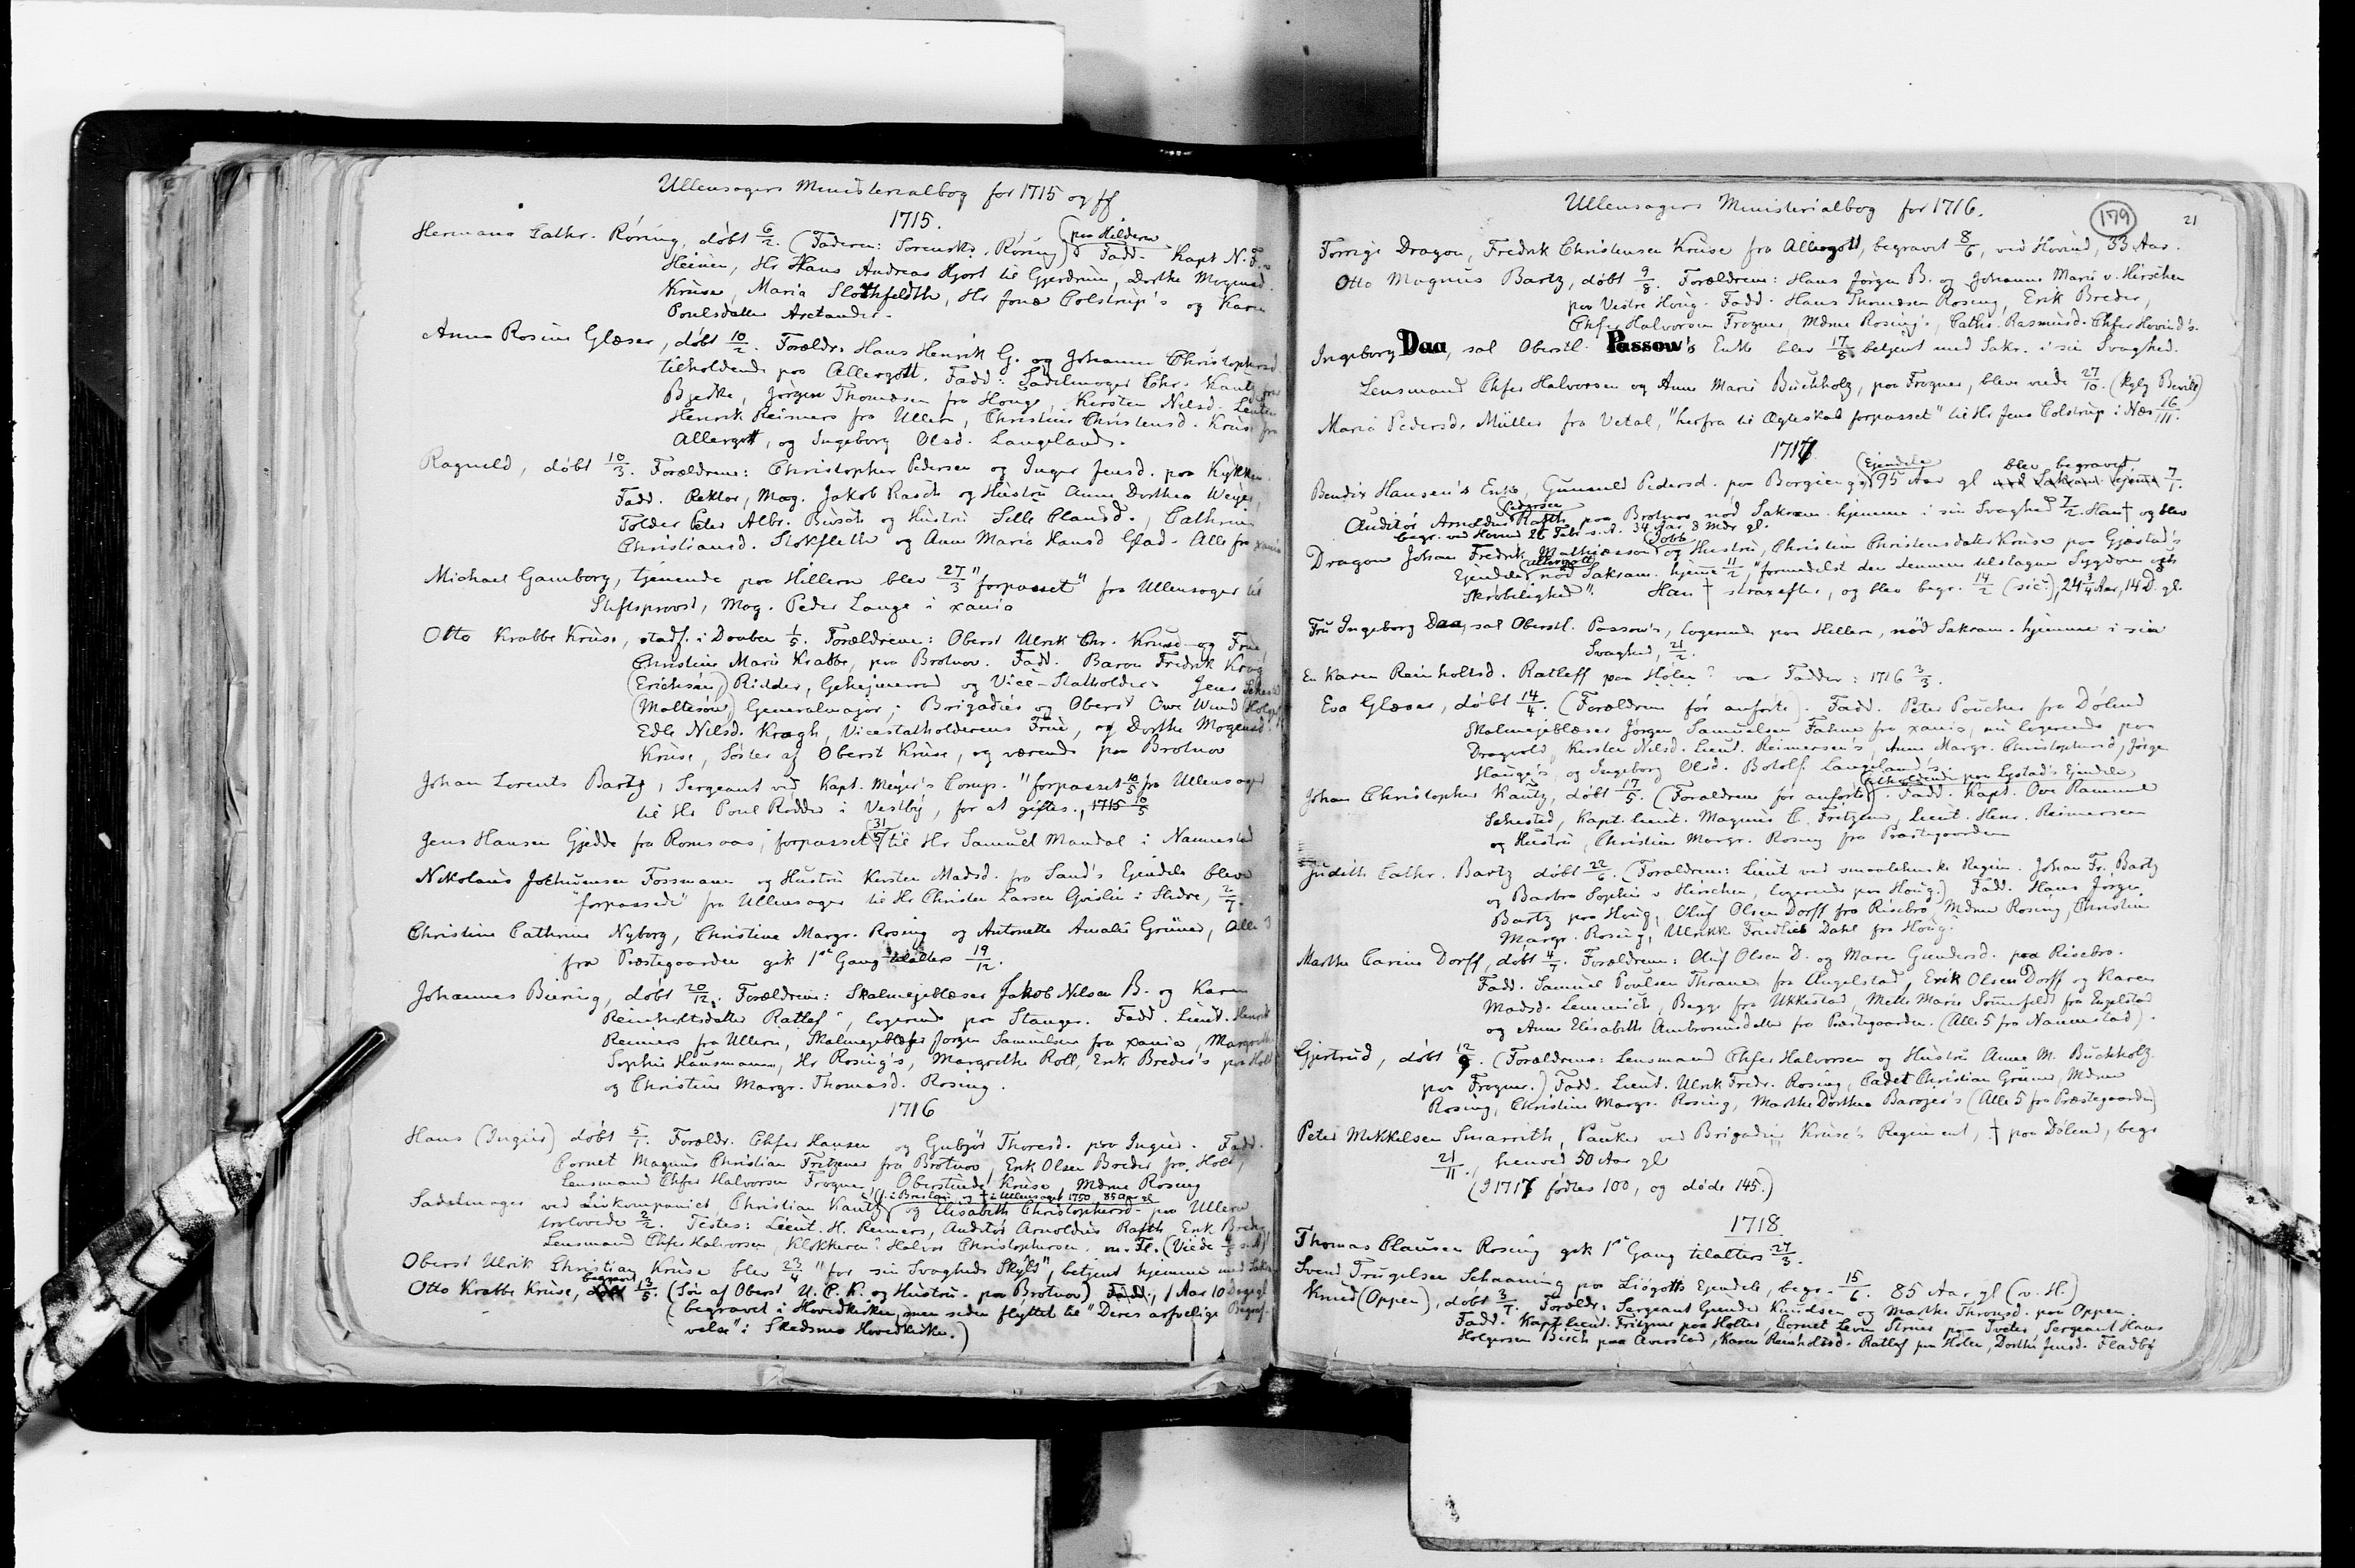 Ullensagers Ministerialbog for 1715 og ff
1715.
Hermana Cathr. Röring, döbt 6/2. (Faderen: Sorenskr. Röring) (paa Hilleren) Fadd. Kapt N. F.
Heinen, Hr Hans Andreas Hjort til Gjerdrum, Dorthe Mogensd.
Kruse, Maria Slothfeldth, Hr Jonæ Colstrup's og Karen
Poulsdatter Arctander.
Anna Rosine Glæser, döbt 10/2. Forældr. Hans Henrik G. og Johanne Christophersd
tilholdende paa Allergott. Fadd: Sadelmager Chr. Kautz fra
Bjerke, Jörgen Thomæsen fra Houge, Kersten Nilsd. Lieuten
Henrik Reimers fra Ullern, Christine Christensd. Kruse fra
Allergott, og Ingeborg Olsd. Langelands.
Ragnild, döbt 10/3. Forældrene: Christopher Pedersen og Inger Jensd. paa Kykken.
Fadd. Rektor, Mag. Jakob Rasch og Hustru Anne Dorthea Weyer,
Tolder Peter Albr. Busch og Hustru Sille Clausd., Cathrine
Christiansd. Stokfleth og Anne Maria Hansd Glad - Alle fra xania
Michael Gamborg, tjenende paa Hillern blev 27/3 "forpasset" fra Ullensager til
Stiftsprovst, Mag. Peder Lange i xania
Otto Krabbe Kruse, stadf. i Daaben 1/5. Forældrene: Oberst Ulrik Chr. Kruse og Frue,
Christine Marie Krabbe, paa Brotnov. Fadd. Baron Fredrik Krag
(Erichsön) Ridder, Gehejmeraad og Vice-Statholder. Jens Sehested
(Maltesön) Generalmajor; Brigadier og Oberst Owe Wind (Holgers
Edle Nilsd. Kragh, Vicestatholderens Frue, og Dorthe Mogensd.
Kruse, Söster af Oberst Kruse, og værende paa Brotnov
Johan Lorents Bartz, Sergeant ved Kapt. Meyer's Comp. "forpasset" 10/5 fra Ullensager
til Hr Poul Rödder i Vestby, for at giftes., 1715 10/5
Jens Hansen Gjedde fra Romsaas, forpasset (31/5) til Hr Samuel Mandal i Nannestad
Nikolaus Jochumsen Fossmann og Hustru Kersten Madsd. fra Sand's Ejendele bleve
"forpassede" fra Ullensager til Hr Christen Larsen Gvislin i Slidre, 2/7.
Christine Cathrine Nyborg, Christine Margr. Rosing og Antonette Amalie Grüner, Alle 3
fra Præstegaarden gik 1ste Gang tilalters 19/12.
Johannes Biering, döbt 20/12. Forældrene: Skalmejeblæser Jakob Nilsen B. og Karen
Reinholtsdatter Ratlef, logerende paa Stanger. Fadd. Lieut. Henrik
Reimers fra Ullern, Skalmejeblæser Jörgen Samuelsen fra xania, Margrethe
Sophie Hausmann, Hr Rosing's, Margrethe Roll, Erik Breder's paa Holt
og Christine Margr. Thomasd. Rosing.
1716
Hans (Ingier) döbt 5/1. Forældr. Chfer Hansen og Gubjör Thoresd. paa Ingier. Fadd.
Cornet Magnus Christian Fritzener fra Brotnov, Erik Olsen Breder fra Holt,
Lensmand Chfer Halvorsen Frogner, Oberstinde Kruse, Mdme Rosing
(f. i Breslau og † i Ullensager 1750, 85 Aar gl
Sadelmager ved Livkompaniet, Christian Kautz og Elisabeth Christophersd. paa Ullern
trolovede 2/2. Testes: Lieut. H. Reimers, Auditör Arnoldus Rafth, Erik Breder
Lensmand Chfer Halvorsen, Klokkeren? Halvor Christophersen. m. Fl. (Viede
Oberst Ulrik Christian Kruse blev 23/4 "for sin Svagheds Skyld", betjent hjemme med Sakr
Otto Krabbe Kruse, begravet 13/5. (Sön af Oberst U. C. K. og Hustru paa Brotnov) Fadd., 1 Aar 10 Dage gl
(begravet i Hovedkirken, men siden flyttet til "Deres arfvelige Begraf-
velse" i Skedsmo Hovedkirke.)
Ullensagers Ministerialbog for 1716.
179
21
Forrige Dragon, Fredrik Christensen Kruse fra Allergott, begravet 8/6, ved Hovind, 33 Aar.
Otto Magnus Bartz, döbt 9/8. Forældrene: Hans Jörgen B. og Johanne Marie v. Hirschen
paa Vestre Houg. Fadd. Hans Thomæsen Rosing, Erik Breder,
Chfer Halvorsen Frogner, Mdme Rosing's, Cathr. Rasmusd. Chfer Hovind's.
Ingeborg Daa, sal Oberstl. Passow's Enke blev 17/8 betjent med Sakr. i sin Svaghed.
Lensmand Chfer Halvorsen og Anne Marie Buckholz, paa Frogner, bleve viede 27/10. (kglg Bevill)
Maria Pedersd. Müller fra Vetal, "herfra til Ægteskab forpasset" til Hr Jens Colstrup i Næs 16/11.
1717.
Bendix Hansen's Enke, Gunnild Pedersd. paa Borgiengs (Ejendele) 95 Aar gl blev begravet 7/1.
Auditör Arnoldus (Pedersen) Rafth, paa Brotnov nöd Sakram. hjemme i sin Svaghed 7/2. Han † og blev
begr. ved Hovind 26 Febr s. A. 34 Aar 8 Mdr gl.
Dragon Johan Fredrik Mathiæson (Jobb) og Hustru, Christine Christensdatter Kruse paa Gjæstad's
Ejendele (Allergott) nöd Sakram. hjeme 11/2, "formedelst den dennem tilslagne Sygdom og
Skröbelighed". Han † straxefter, og blev begr. 14/2 (sic!), 24 3/4 Aar, 14 D. gl.
Fru Ingeborg Daa, sal Oberstl. Passow's, logerende paa Hillern, nöd Sakram. hjemme i sin
Svaghed, 21/2.
En Karen Reinholtsd. Ratleff paa Holen? var Fadder: 1716 3/3.
Eva Glæser, döbt 14/4. (Forældrene för anförte). Fadd. Peter Poucher fra Dölend
Skalmejeblæser Jörgen Samuelsen Fahne fra xania, nu logerende paa
Dragvold, Kersten Nilsd. Lieut. Reimersen's, Anne Margr. Christophersd, Jörgen
Hauge's, og Ingeborg Olsd. Botolf Langeland's.
Johan Christopher Kautz, döbt 17/5. (Forældrene för anförte) (tilholdende paa Lystad's Ejendele). Fadd. Kapt. Ove Rammel
Sehested, Kapt. lieut. Magnus C. Fritzener, Lieut. Henr. Reimersen
og Hustru, Christine Margr. Rosing fra Præstegaarden
Judith Cathr. Bartz döbt 22/6. (Forældrene: Lieut ved smaalehnske Regim. Johan Fr. Bartz
og Barbro Sophie v Hirschen, logerende paa Houg.) Fadd. Hans Jörgen
Bartz paa Houg, Oluf Olsen Dorff fra Risebro, Mdme Rosing, Christine
Margr. Rosing, Ulrikke Friedlieb Dahl fra Houg.
Marthe Carine Dorff, döbt 4/7. Forældrene: Oluf Olsen D. og Maren Gundersd. paa Risebro.
Fadd. Samuel Poulsen Thrane fra Angelstad, Erik Olsen Dorff og Karen
Madsd. Lemmich, Begge fra Ukkestad, Mette Marie Sounfeldt fra Engelstad
og Anne Elisabeth Ambrosiusdatter fra Præstegaarden. (Alle 5 fra Nannestad).
Gjertrud, döbt 12/9. (Forældrene: Lensmand Chfer Halvorsen og Hustru Anne M. Buckholz.
paa Frogner.) Fadd. Lieut. Ulrik Fredr. Rosing, Cadet Christian Grüner, Mdme
Rosing, Christine Margr. Rosing, Marthe Dorthea Baroyer's (Alle 5 fra Præstegaarden)
Peter Mikkelsen Smarrith, Pauker ved Brigadier Kruse's Regiment, † paa Dölend, begr
21/11., henved 50 Aar gl
(I 1717 födtes 100, og döde 145.)
1718
Thomas Clausen Rosing gik 1ste Gang tilalters 27/3.
Svend Trugelsen Schnaning paa Liögotts Ejendele, begr. 15/6. 85 Aar gl (v. H.)
Knud (Oppen), döbt 3/7. Forældr: Sergeant Gunder Knudsen og Marthe Thronsd. paa Oppen.
Fadd. Kapt lieut. Fritzner paa Holter, Cornet Levin Struer paa Tveter, Sergeant Hans
Holgersen Bisch paa Aurstad, Karen Reinholtsd. Ratlef paa Holen, Dorthe Jensd. Fladby